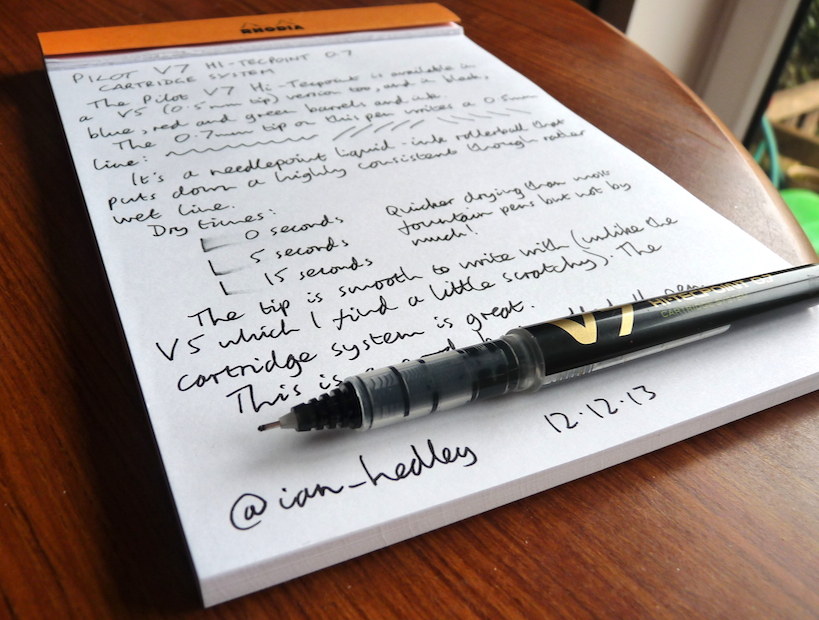 RHODIA
PILOT V7 HI-TECPOINT 0.7
CARTRIDGE SYSTEM
The Pilot V7 Hi-Tecpoint is available in
a V5 (0.5mm tip) version too, and in black,
blue, red and green barrels and ink.
The 0.7mm tip on this pen writes a 0.5mm
line:
It's a needlepoint liquid-ink rollerball that
puts down a highly consistent though rather
wet line.
Dry times:
0 seconds
5 seconds
15 seconds
Quicker drying than most
fountain pens but not by
much!
The tip is smooth to write with (unlike the
V5 which I find a little scratchy). The
cartridge system is great.
This is a
V7 HI-TECPOINT 0.7
CARTRIDGE SYSTEM
12.12.13
@ian_hedley